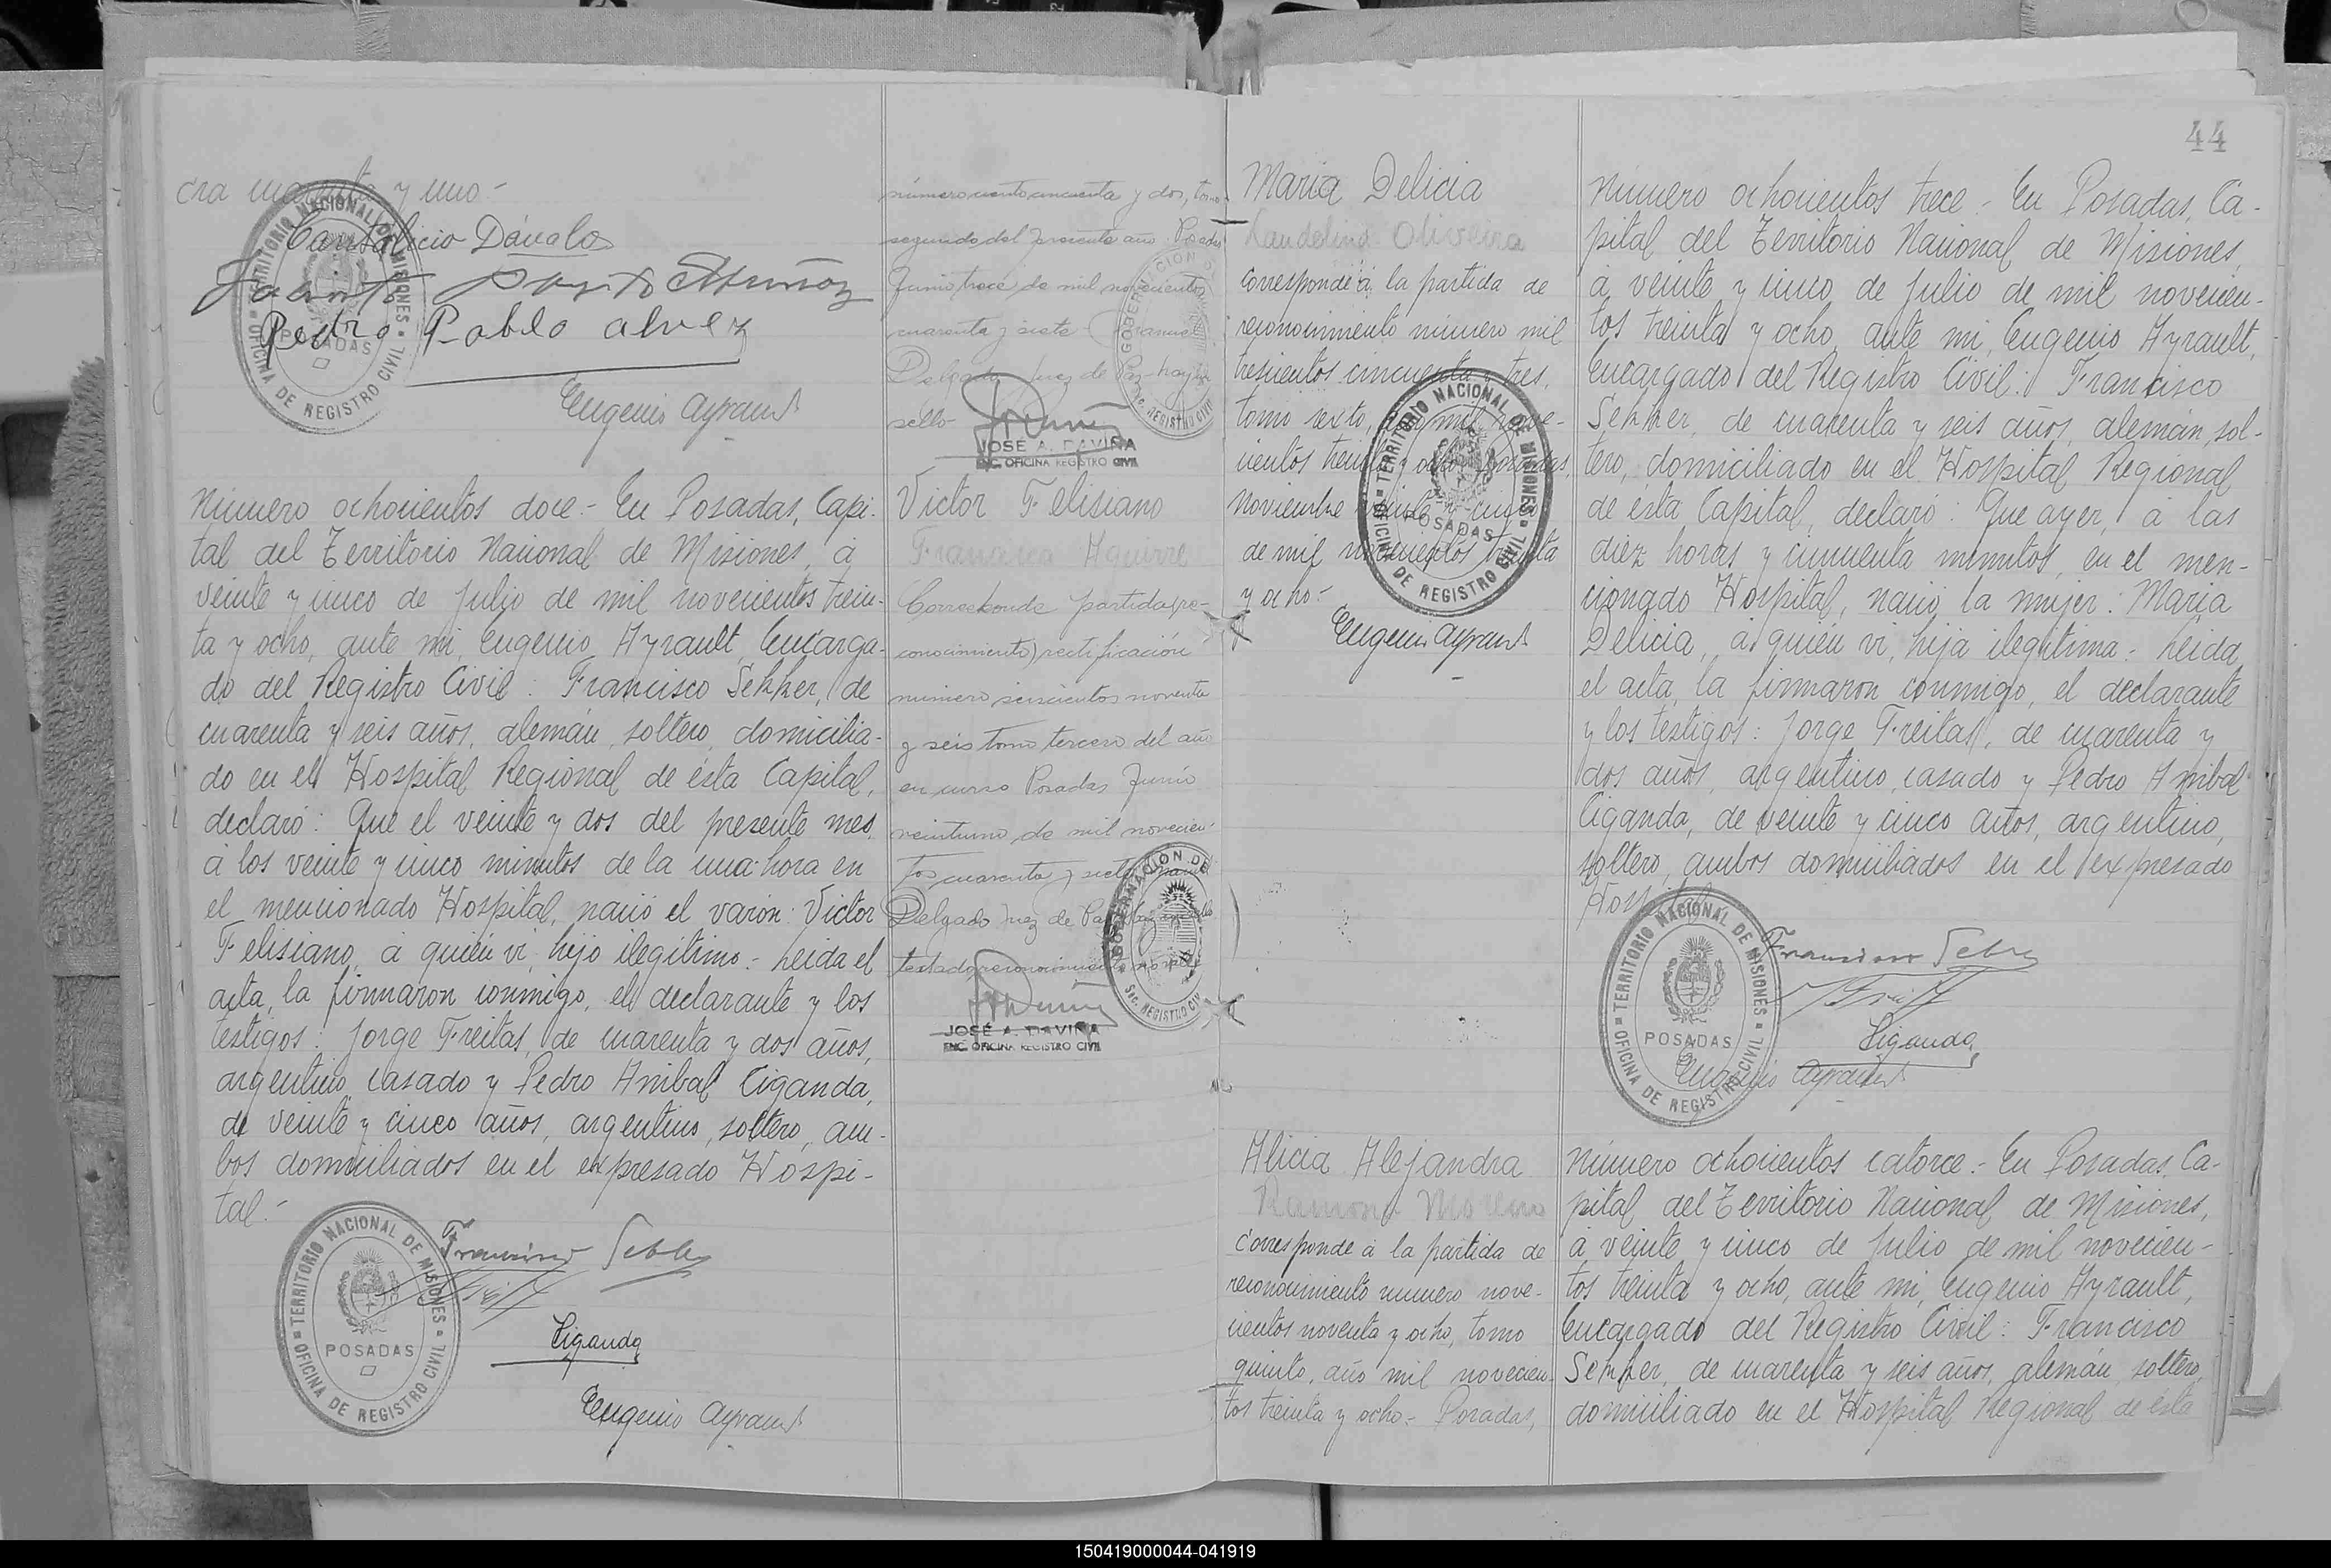 44
cra cuarenta y uno-
Cantalicio Dávalos
Jacinto
Pedro Pablo Alvez
Eugenio Ayrault
número ciento cincuenta y dos, tomo
segundo del presente año. Posadas
Junio trece de mil novecientos
cuarenta y siete Manuel
Delgado Juez de Paz- hay un
sello-
JOSÉ A. DAVIÑA
ENC. OFICINA REGISTRO CIVIL
Número ochocientos doce.- En Posadas, Capi-
tal del Territorio Nacional de Misiones, á
veinte y cinco de Julio de mil novecientos trein-
ta y ocho, ante mi, Eugenio Ayrault, Encarga-
do del Registro Civil: Francisco Sekker, de
cuarenta y seis años, alemán, soltero, domicilia-
do en el Hospital Regional de ésta Capital,
declaró: Que el veinte y dos del presente mes
á los veinte y cinco minutos de la una hora en
el mencionado Hospital, nació el varón: Victor
Felisiano, á quién vi, hijo ilegitimo.- Leida el
acta, la firmaron conmigo, el declarante y los
testigos: Jorge Freitas, de cuarenta y dos años,
argentino, casado y Pedro Anibal Ciganda,
de veinte y cinco años, argentino, soltero, am-
bos domiciliados en el expresado Hospi-
tal.-
Francisco
Ciganda
Eugenio Ayrault
TERRITORIO NACIONAL DE MISIONES
POSADAS
OFICINA DE REGISTRO CIVIL
Victor Felisiano
Francisca Aguirre
Corresponde partida (re-
conocimiento) rectificación
número seiscientos noventa
y seis tomo tercero del año
en curso Posadas Junio
veintiuno de mil novecien-
tos cuarenta y siete Manuel
Delgado Juez de Paz
testado reconocimiento no vale
JOSÉ A. DAVIÑA
ENC. OFICINA REGISTRO CIVIL
Maria Delicia
Laudelina Oliveira
Corresponde á la partida de
reconocimiento número mil
trescientos cincuenta y tres,
tomo sexto, año mil nove-
cientos treinta y ocho. Posadas,
Noviembre veinte y cinco
de mil novecientos treinta
y ocho.-
Eugenio Ayrault
Número ochocientos trece.- En Posadas, Ca-
pital del Territorio Nacional de Misiones,
á veinte y cinco de Julio de mil novecien-
tos treinta y ocho, ante mi, Eugenio Ayrault,
Encargado del Registro Civil: Francisco
Sekker, de cuarenta y seis años, alemán, sol-
tero, domiciliado en el Hospital Regional
de ésta Capital, declaró: Que ayer, á las
diez horas y cincuenta minutos, en el men-
cionado Hospital, nació la mujer: Maria
Delicia, á quién vi, hija ilegitima.- Leida
el acta, la firmaron conmigo, el declarante
y los testigos: Jorge Freitas, de cuarenta y
dos años, argentino, casado y Pedro Anibal
Ciganda, de veinte y cinco años, argentino,
soltero, ambos domiciliados en el expresado
Hospital
Francisco
Ciganda
Eugenio Ayrault
TERRITORIO NACIONAL DE MISIONES
POSADAS
OFICINA DE REGISTRO CIVIL
Alicia Alejandra
Ramona Moreno
Corresponde á la partida de
reconocimiento número nove-
cientos noventa y ocho, tomo
quinto, año mil novecien-
tos treinta y ocho.- Posadas,
Número ochocientos catorce.- En Posadas, Ca-
pital del Territorio Nacional de Misiones,
á veinte y cinco de Julio de mil novecien-
tos treinta y ocho, ante mi, Eugenio Ayrault,
Encargado del Registro Civil: Francisco
Sekker, de cuarenta y seis años, alemán, soltero,
domiciliado en el Hospital Regional de ésta
150419000044-041919